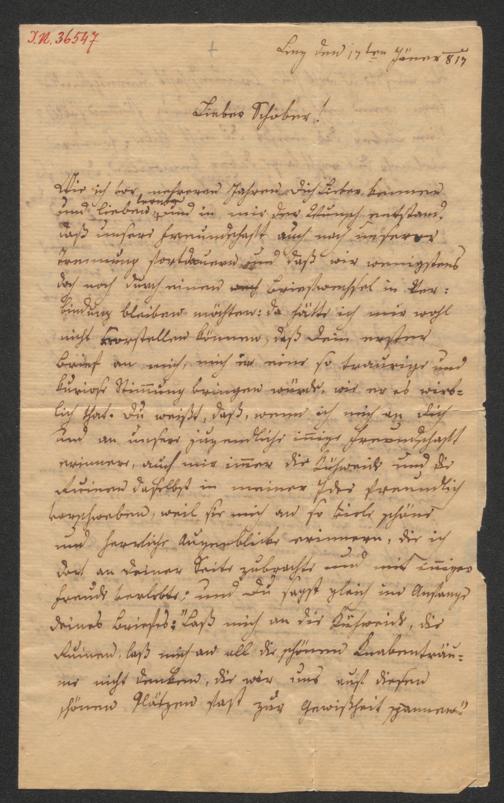 I.N. 36547
Linz den 17ten Jäner 817
Lieber Schober!
Wie ich vor mehreren Jahren Dich Lieber kennen
und lieben lernte, und in mir der Wunsch entstand,
daß unsere Freundschaft auch nach unserer
Trennung fortdauern und daß wir wenigstens
doch noch durch einen Briefwechsel in Ver-
bindung bleiben möchten: da hätte ich mir wohl
nicht vorstellen können, daß Dein erster
Brief an mich, mich in eine so traurige und
kuriose Stimmung bringen würde, wie er es wirk-
lich that. Du weißt, daß, wenn ich mich an Dich
und an unsere jugendliche innige Freundschaft
erinnere, auch mir immer die Kühweide und die
Ruinen daselbst in meiner Idee freundlich
vorschweben, weil sie mich an so viele schöne
und herrliche Augenblicke erinnern, die ich
dort an Deiner Seite zubrachte und mit inniger
Freude verlebte; und Du sagst gleich im Anfange
Deines Briefes: "Laß mich an die Kühweide, die
Ruinen, laß mich an all die schönen Knabenträu-
me nicht denken, die wir uns auf diesen
schönen Plätzen fast zur Gewißheit spannen."